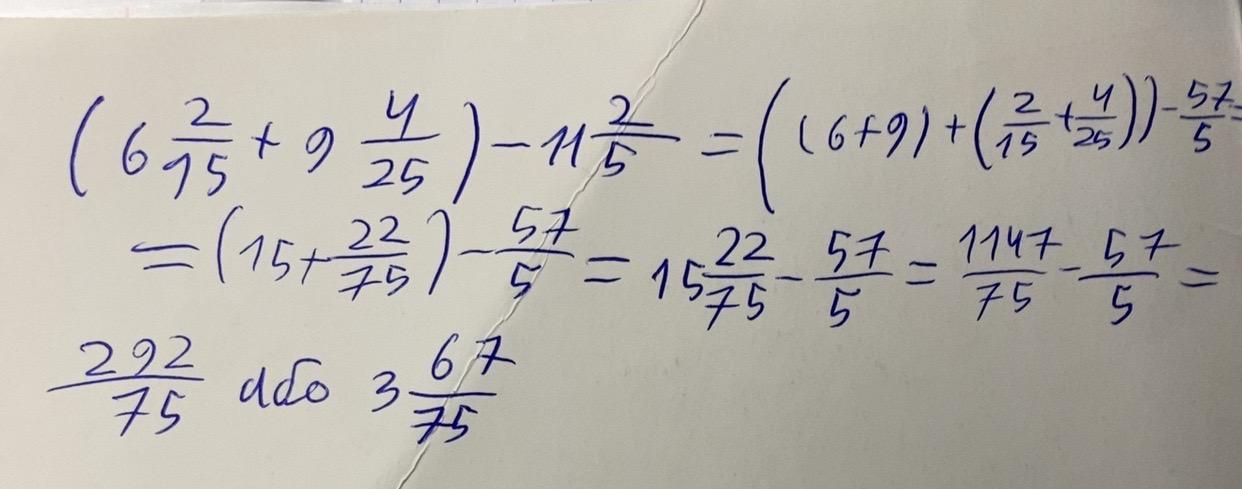 (6 2/15 + 9 4/25) - 11 2/5 = ((6+9) + (2/15 + 4/25)) - 57/5 =
= (15 + 22/75) - 57/5 = 15 22/75 - 57/5 = 1147/75 - 57/5 =
292/75 або 3 67/75